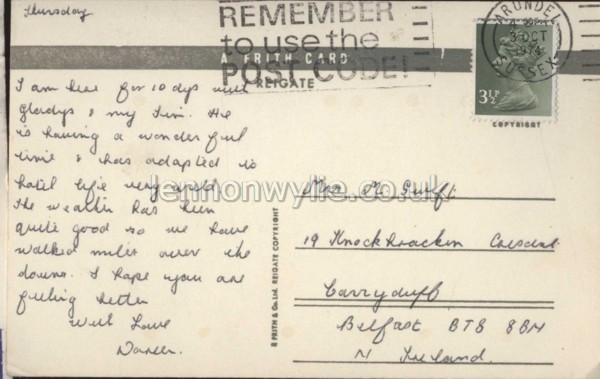 Thursday
REMEMBER
to use the
POST CODE!
ARUNDEL
3 OCT
1974
SUSSEX
A FRITH CARD
REIGATE
3½P
COPYRIGHT
I am here for 10 dys with
Gladys & my Tim. He
is having a wonderful
time & has adapted to
hotel life very well
The weather has been
quite good so we have
walked miles over the
downs. I hope you are
feeling better
With Love
lennonwylie.co.uk
F FRITH & Co. Ltd. REIGATE COPYRIGHT
Mrs M. Swift
19 Knockbracken Cresdent
Carryduff
Belfast BT8
N Ireland.